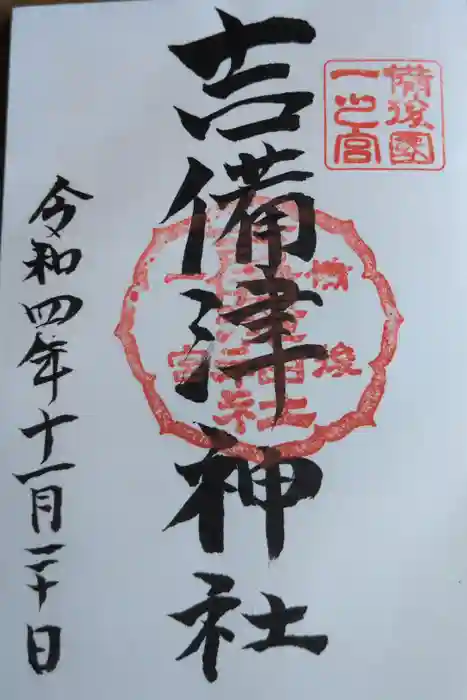 備後國
一之宮
吉備津神社
令和四年十一月二十日